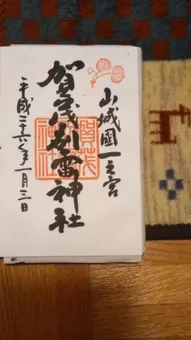 山城國一之宮
賀茂別雷神社
平成二十六年一月三日